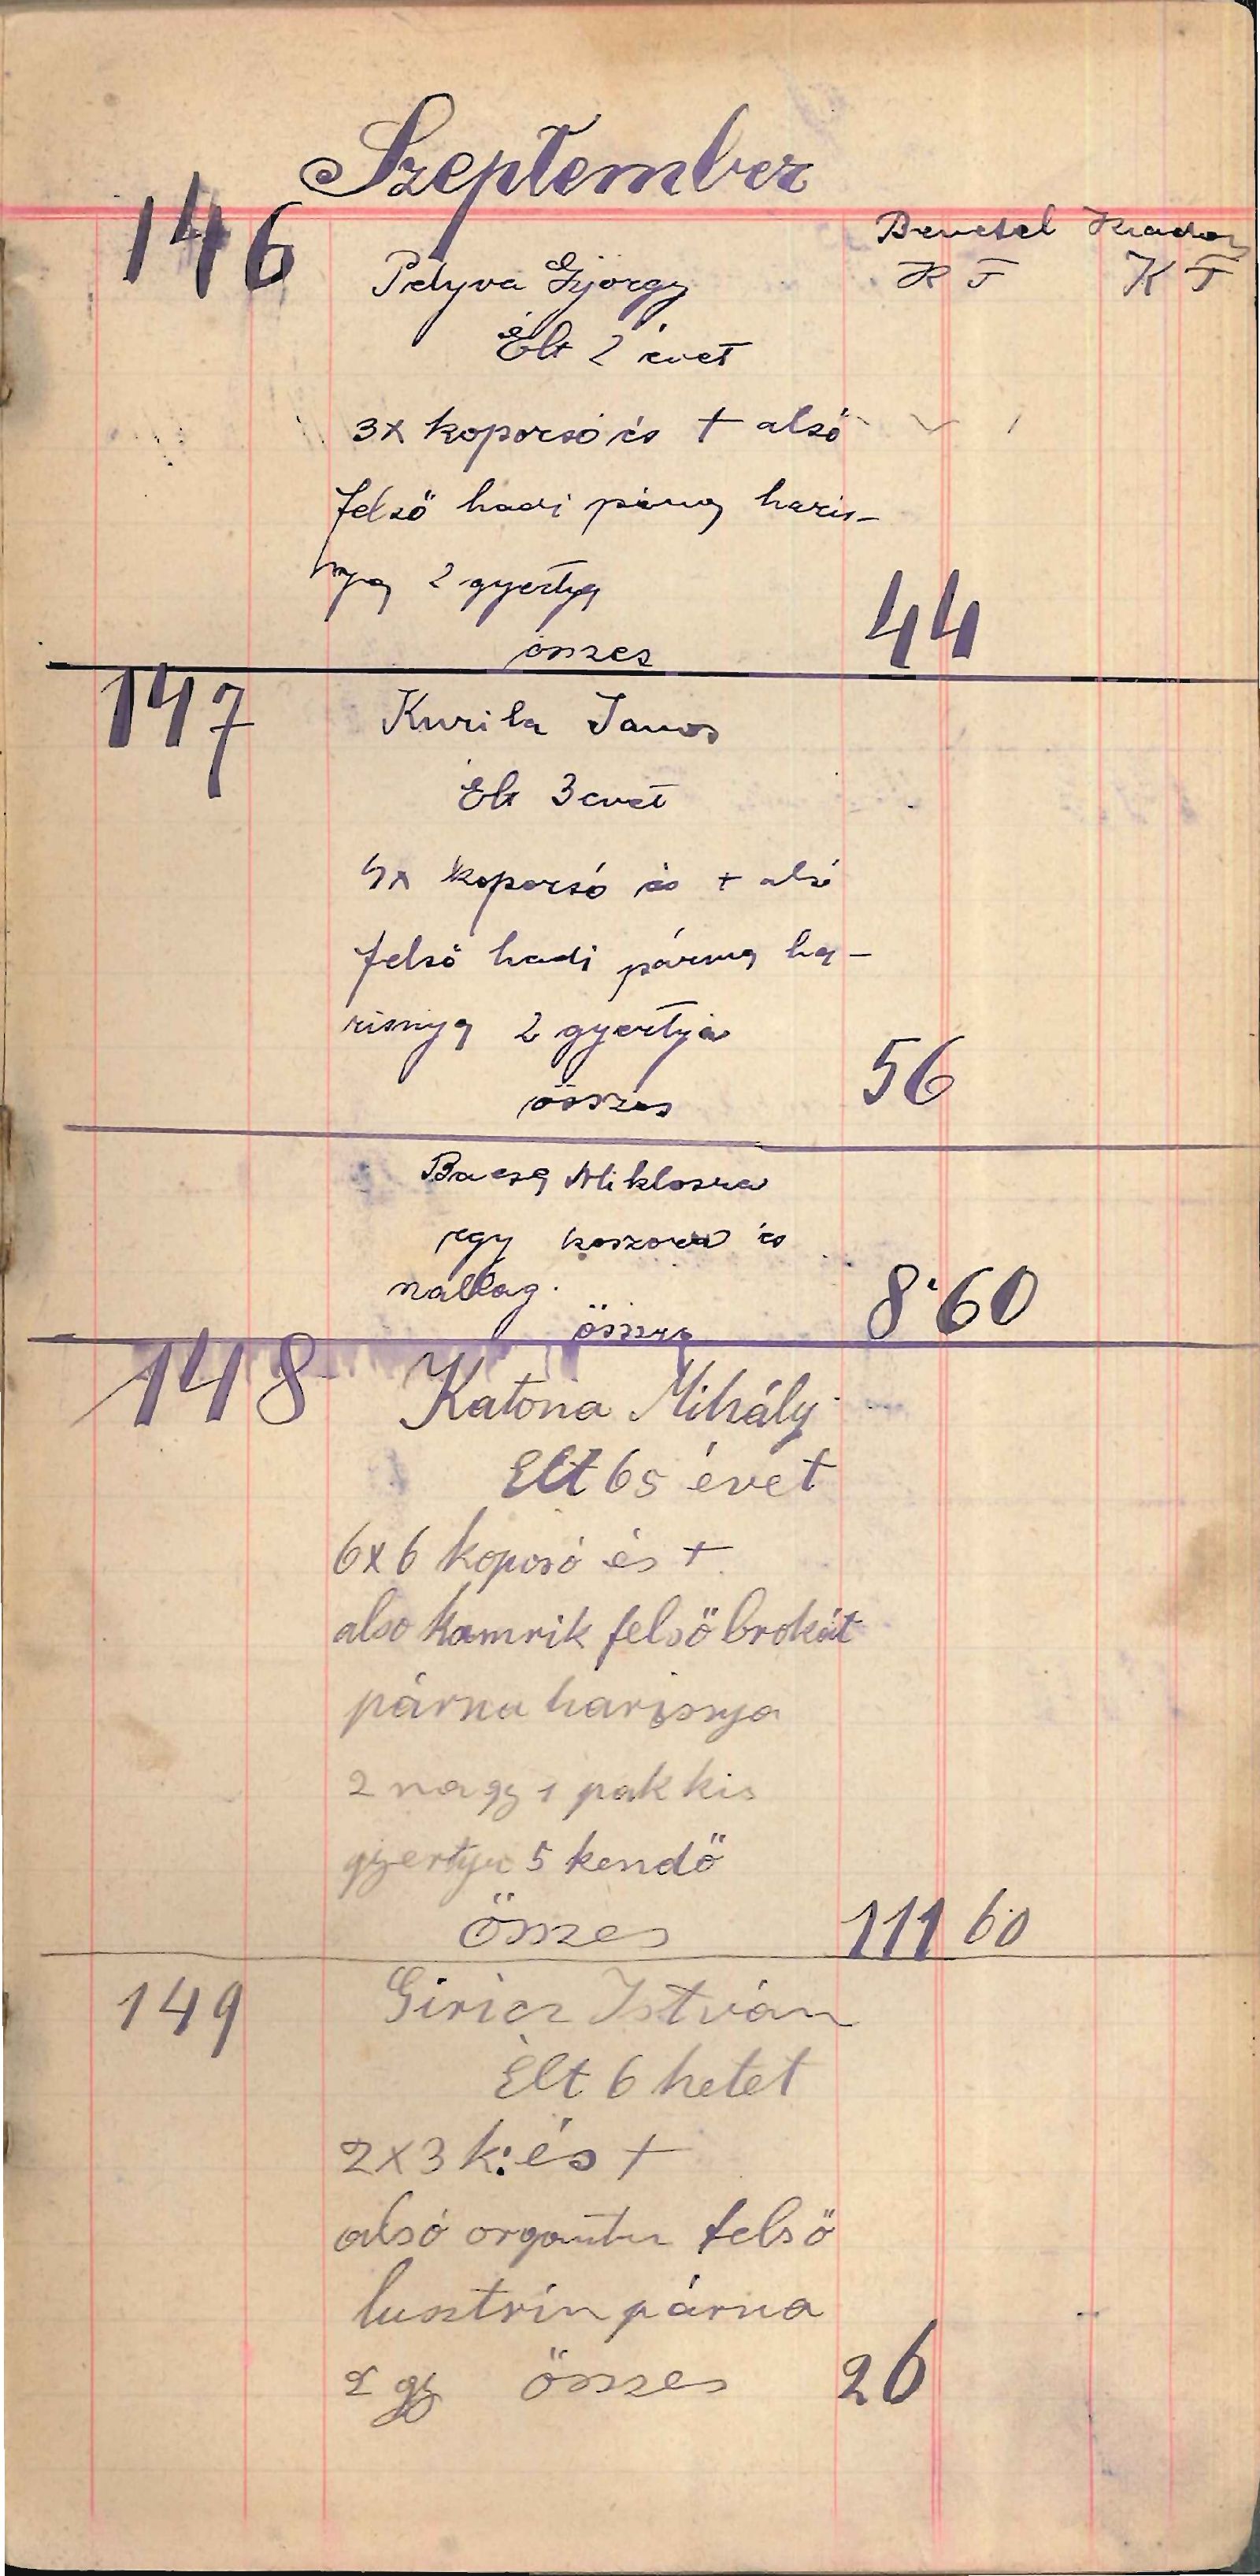 Szeptember
Bevetel Kiadas
146 Pelyva György K F K F
Élt 2 évet
3x koporsó és + alsó
felső hadi párna haris-
nya 2 gyertya
összes 44
147 Kurila Janos
Élt 3 evet
4x koporsó és + alsó
felső hadi párna ha-
risnya 2 gyertya
össszes 56
Bacsa Miklosra
egy koszoru és
nallag.
össze 8·60
148 Katona Mihály
Elt 65 évet
6x6 koposó és +
also kamrik felső brokát
párna harisnya
2 nagy 1 pak kis
gyertya 5 kendő
összes 111 60
149 Giricz István
Élt 6 hetet
2x3 k: és +
alsó organtin felső
lusztrin párna
2 gy összes 26